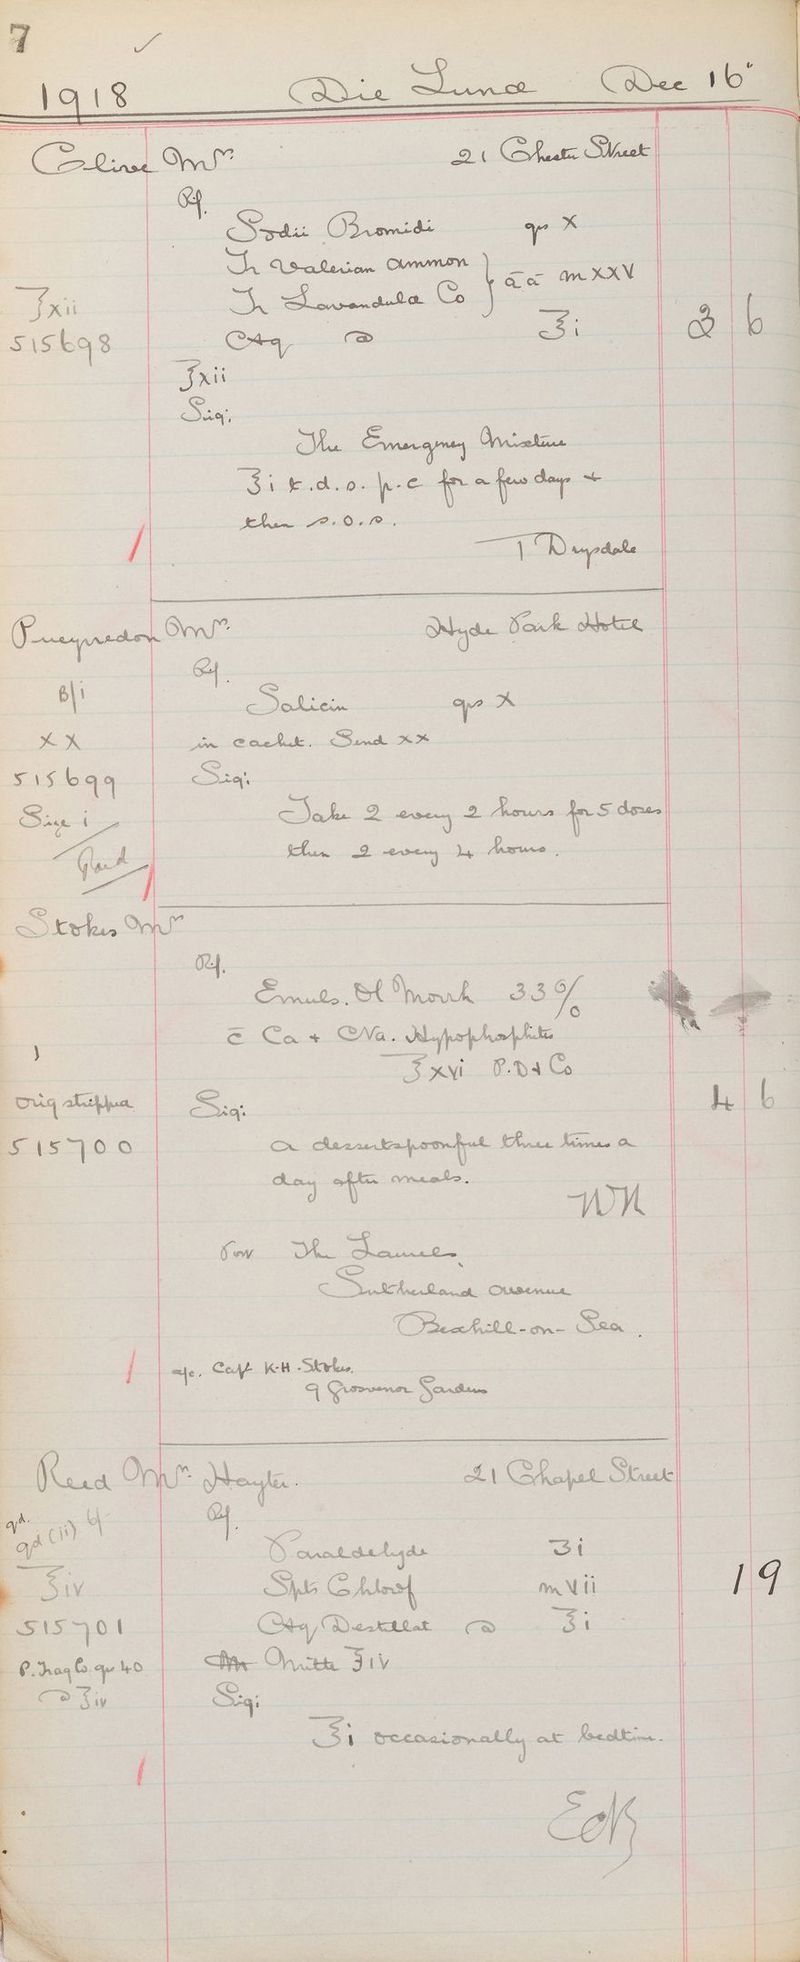 7
1918 Die Lunæ Dec 16"
Clive Mrs 21 Chester Street
Rf.
Sodii Bromidi grs X
Tr Valerian Ammon
Tr Lavandulæ Co } āā m XXV
℥xii
515698 Aq @ ℥i 3 6
℥xii
Sig:
The Emergency Mixture
℥i t.d.s. p.c for a few days +
then s.o.s.
T Drysdale
Pueyrredon Mrs Hyde Park Hotel
Rf.
B/i Salicin grs X
XX in cachet. Send XX
515699 Sig:
Size i Take 2 every 2 hours for 5 doses
then 2 every 4 hours.
Paid
Stokes Mrs
Rf.
Emuls. Ol Morrh 33%
c̄ Ca + Na. Hypophosphites
1 ℥xvi P.D & Co
orig strippea Sig: 4 6
515700 a dessertspoonful three times a
day after meals.
WR
The Laurels,
Sutherland Avenue
Bexhill-on-Sea.
a/c. Capt K.H. Stokes.
9 Grosvenor Gardens
Reed Mrs Hayter. 21 Chapel Street
Rf.
qd.
qd (ii) 6/-
Paraldehyde ʒi
℥iv Spts Chlorof m vii 1 9
515701 Aq Destillat @ ℥i
P. Trag Co. grs 40 Mitte ℥iv
@ ℥iv Sig:
℥i occasionally at bedtime.